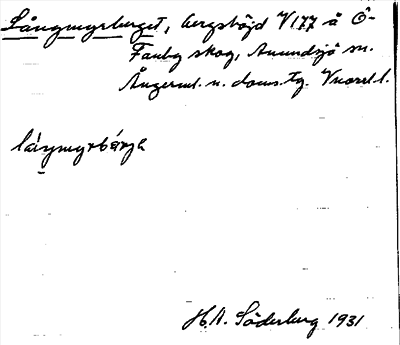 Långmyrberget, bergshöjd V177 å Ö-
Fanby skog, Anundsjö sn.
Ångerml. n. doms.tg. Vnorrl l.
láŋmyrbärjə
H.A. Söderberg 1931